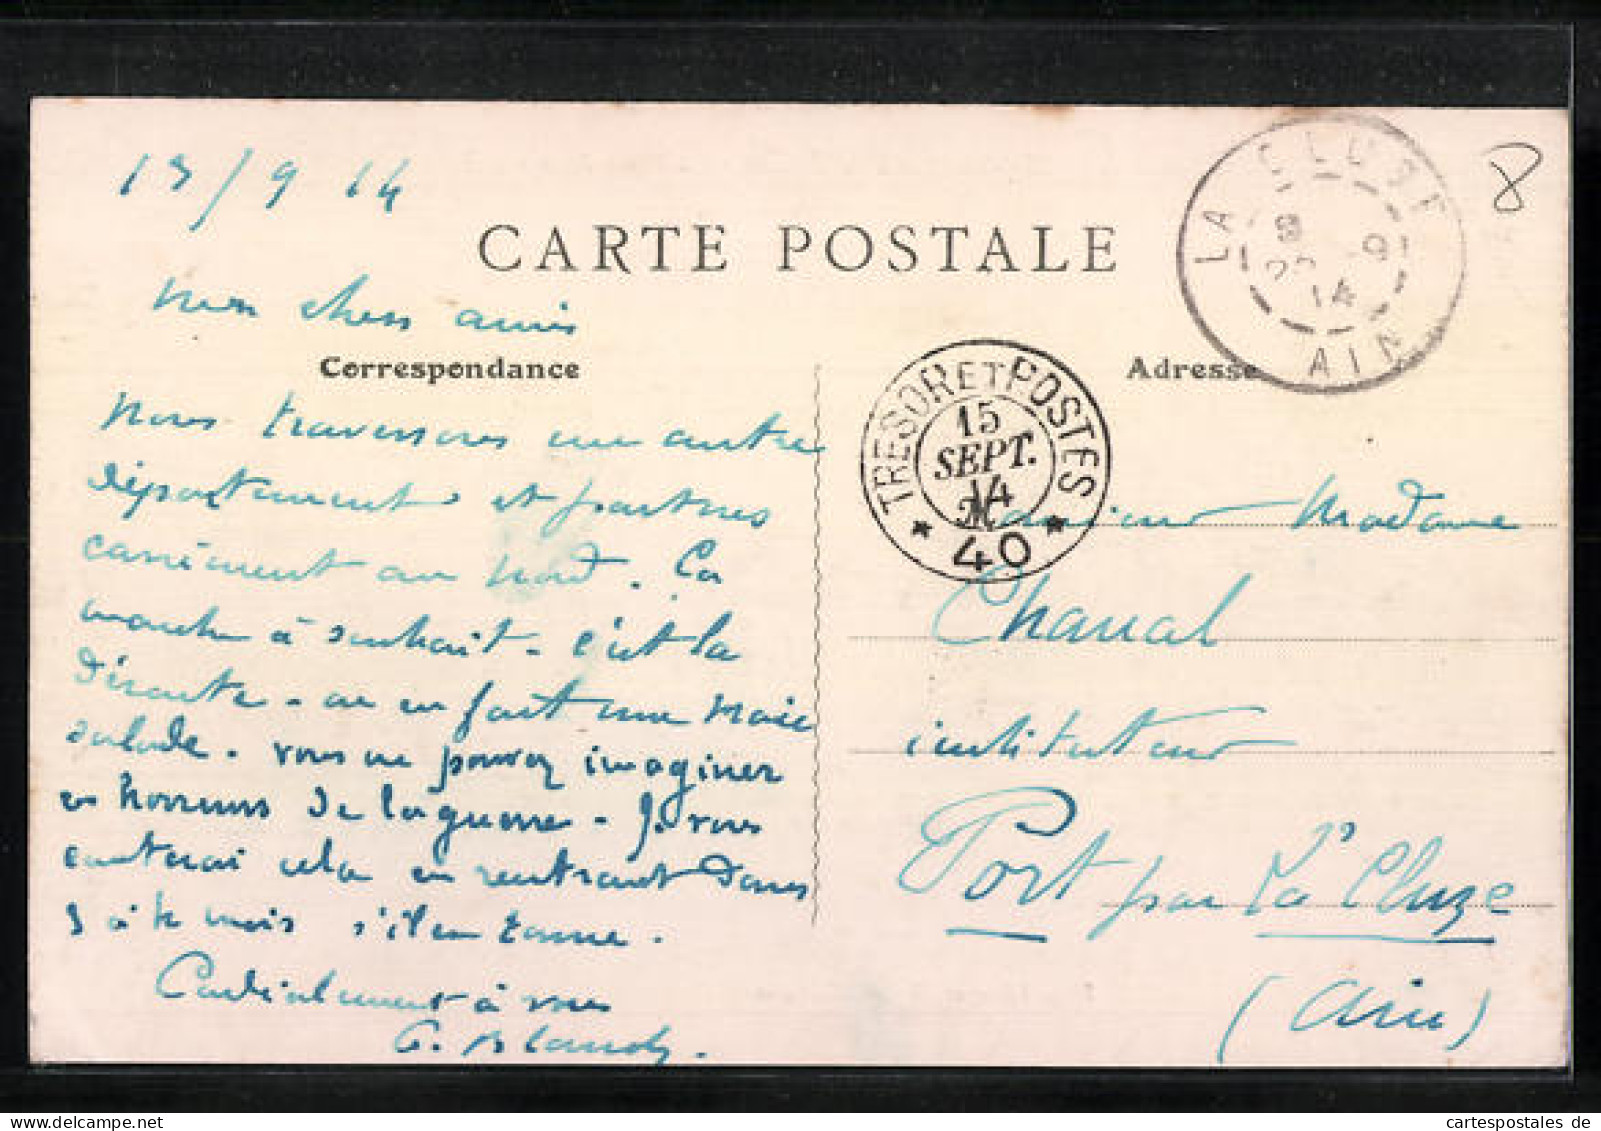 13/9 14
CARTE POSTALE
Mes chers amis
Correspondance
Nous traversons une autre
département et partons
carrément au nord. Ça
marche à souhait - c'est la
déroute - on en fait une vraie
salade. Vous ne pouvez imaginer
les horreurs de la guerre - Je vous
conterai cela en rentrant dans
3 à 4 mois s'il en tourne.
Cordialement à vous
G. Blandy.
LA CLUSE
AIN
14
8
TRESOR ET POSTES
15
SEPT.
14
* 40 *
Adresse
Monsieur Madame
Chanal
instituteur
Port par La Cluze
(Ain)
cartespostales de